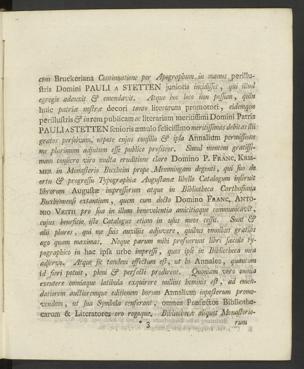 cum Bruckeriana Continuatione per Apographum in manus perillu-
stris Domini PAULI A STETTEN junioris incidisset, qui illud
egregie adauxit & emendavit. Atque hoc loco non possum, quin
huic patriæ nostræ decori tanto literarum promotori, eidemque
perillustris & in rem publicam ac literariam meritissimi Domini Patris
PAULI A STETTEN senioris æmulo felicissimo meritissimas debitas illi
grates persolvam, utpote cujus consilio & ipsa Annalium permissione
me plurimum adjutum esse publice profiteor. Simul nomen gratissi-
mum conjicio viro multa eruditione claro Domino P. FRANC. KRIS-
MER in Monasterio Buxheim prope Memmingam degenti, qui suo de
ortu & progressu Typographiæ Augustanæ libello Catalogum inseruit
librorum Augustæ impressorum atque in Bibliotheca Carthusiana
Buxheimensi exstantium, quem cum docto Domino FRANC. ANTO-
NIO VEITH pro sua in illum benevolentia amicitiaque communicavit,
cujus beneficio iste Catalogus etiam in usus meos cessit. Sunt &
alii plures, qui me suis auxiliis adjuvere, quibus omnibus gratias
ago quam maximas. Neque parum mihi profuerunt libri sæculo ty-
pographico in hac ipsa urbe impressi, quos ipse in Bibliotheca mea
adservo. Atque sic tandem effectum est, ut hi Annales, quantum
id fieri potuit, pleni & perfecti prodirent. Quoniam vero omnia
excutere omniaque latibula exquirere nullius hominis est, ad emen-
datiorem auctioremque editionem horum Annalium impetrum promo-
vendum, ut sua Symbola conferant, omnes Præfectos Bibliothe-
carum & Literatores oro rogoque. Bibliothecæ aliquot Monasterio-
* 3
rum